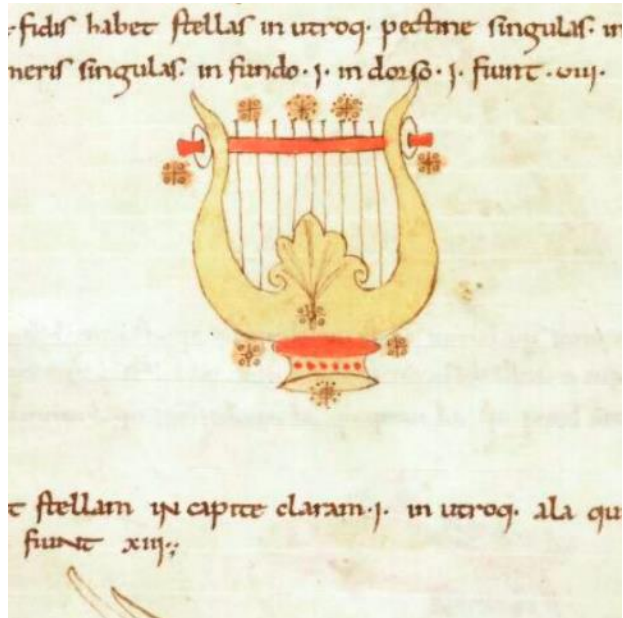 ·fidis habet stellas in utroq· pectine singulas· in
neris singulas· in fundo·i· in dorso·i· fiunt·uiii·
t stellam in capite claram·i· in utroq· ala qu
fiunt xiii·;